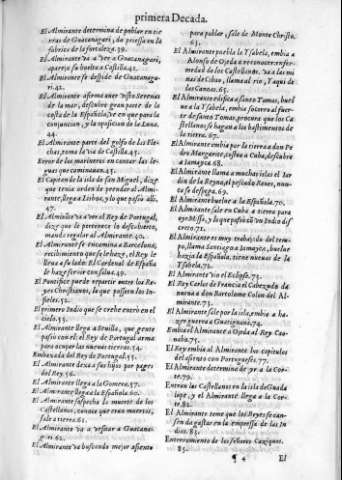 primera Decada.
El Almirante determina de poblar en tie
rras de Guacanagari, da priessa en la
fabrica de la fortaleza. 39.
El Almirante va a ver a Guacanagari,
apareja su buelta a Castilla. 41.
El Almirante se despide de Guacanaga-
ri. 42.
El Almirante afirma auer visto Serenas
de la mar, descubre gran parte de la
costa de la Española, ve en que para la
conjuncion, y la oposicion de la Luna.
44.
El Almirante parte del golfo de las Fle-
chas, toma la via de Castilla. 45.
Error de los marineros en contar las le-
guas que caminauan. 45.
El Capitan de la isla de san Miguel, dize
que tenia orden de prender al Almi-
rante, llega a Lisboa, y lo que passò alli.
47.
El Almirante va a ver al Rey de Portugal,
dize que le pertenece lo descubierto,
mandò regalar al Almirante. 49.
El Almirante se encamina a Barcelona,
recibimiento que se le haze, el Rey le
lleua a su lado. El Cardenal de España
le haze seruir con salua. 49.
El Pontifice puede repartir entre los Re-
yes Christianos, lo que posseen los In-
fieles. 52.
El primero Indio que se cree entrò en el
cielo. 53.
El Almirante llega a Seuilla, que gente
passò con el: el Rey de Portugal arma
para ocupar las nueuas tierras. 54.
Embaxada del Rey de Portugal. 55.
El Almirante dexa sus hijos por pages
del Rey. 56.
El Almirante llega a la Gomera. 57.
El Almirante llega a la Española. 60.
El Almirante sospecha la muerte de los
Castellanos, conoce que eran muertos,
sale a tierra. 61.
El Almirante va a visitar a Guacana-
gari. 62.
El Almirante va buscando mejor assiento
para poblar, sale de Monte Christo.
63.
El Almirante puebla la Ysabela, embia a
Alonso de Ojeda a reconocer: enfer-
medad de los Castellanos. va a las mi
nas de Cibao, llama al rio, Yaqui de
las Cannas. 65.
El Almirante edifica a santo Tomas, buel
ue a la Ysabela, embia socorro al fuer-
te de santo Tomas, procura que los Ca
stellanos se hagan a los bastimentos de
la tierra. 67.
El Almirante embia por la tierra a don Pe
dro Margarite, costea a Cuba, descubre
a Iamayca. 68.
El Almirante llama a muchas islas el Iar
din de la Reyna, el pescado Reues, nun-
ca se despega. 69.
El Almirante buelue a la Española. 70.
El Almirante sale en Cuba a tierra para
oyr Missa, y lo que passa cõ vn Indio dis
creto. 71.
El Almirante es muy trabajado del tiem-
po, llama Santiago a Iamayca, buelue
hazia la Española, tiene nueuas de la
Ysabela. 72.
El Almirante vio el Eclipse. 73.
El Rey Carlos de Francia el Cabezudo da
nueua a don Bartolome Colon del Al-
mirante. 73.
El Almirante sale por la isla, embia a ha-
zer guerra a Guatiguanà. 74.
Embia el Almirante a Ojeda al Rey Cao-
nabo. 75.
El Rey embia al Almirante los capitulos
del assiento con Portugueses. 77.
El Almirante determina de yr a la Cor-
te. 79.
Entran los Castellanos en la isla de Guada
lupe, y el Almirante llega a la Cor-
te. 82.
El Almirante teme que los Reyes se can-
sen de gastar en la empressa de las In
dias. 83.
Enterramiento de los señores Caziques.
85.
¶ 4
El